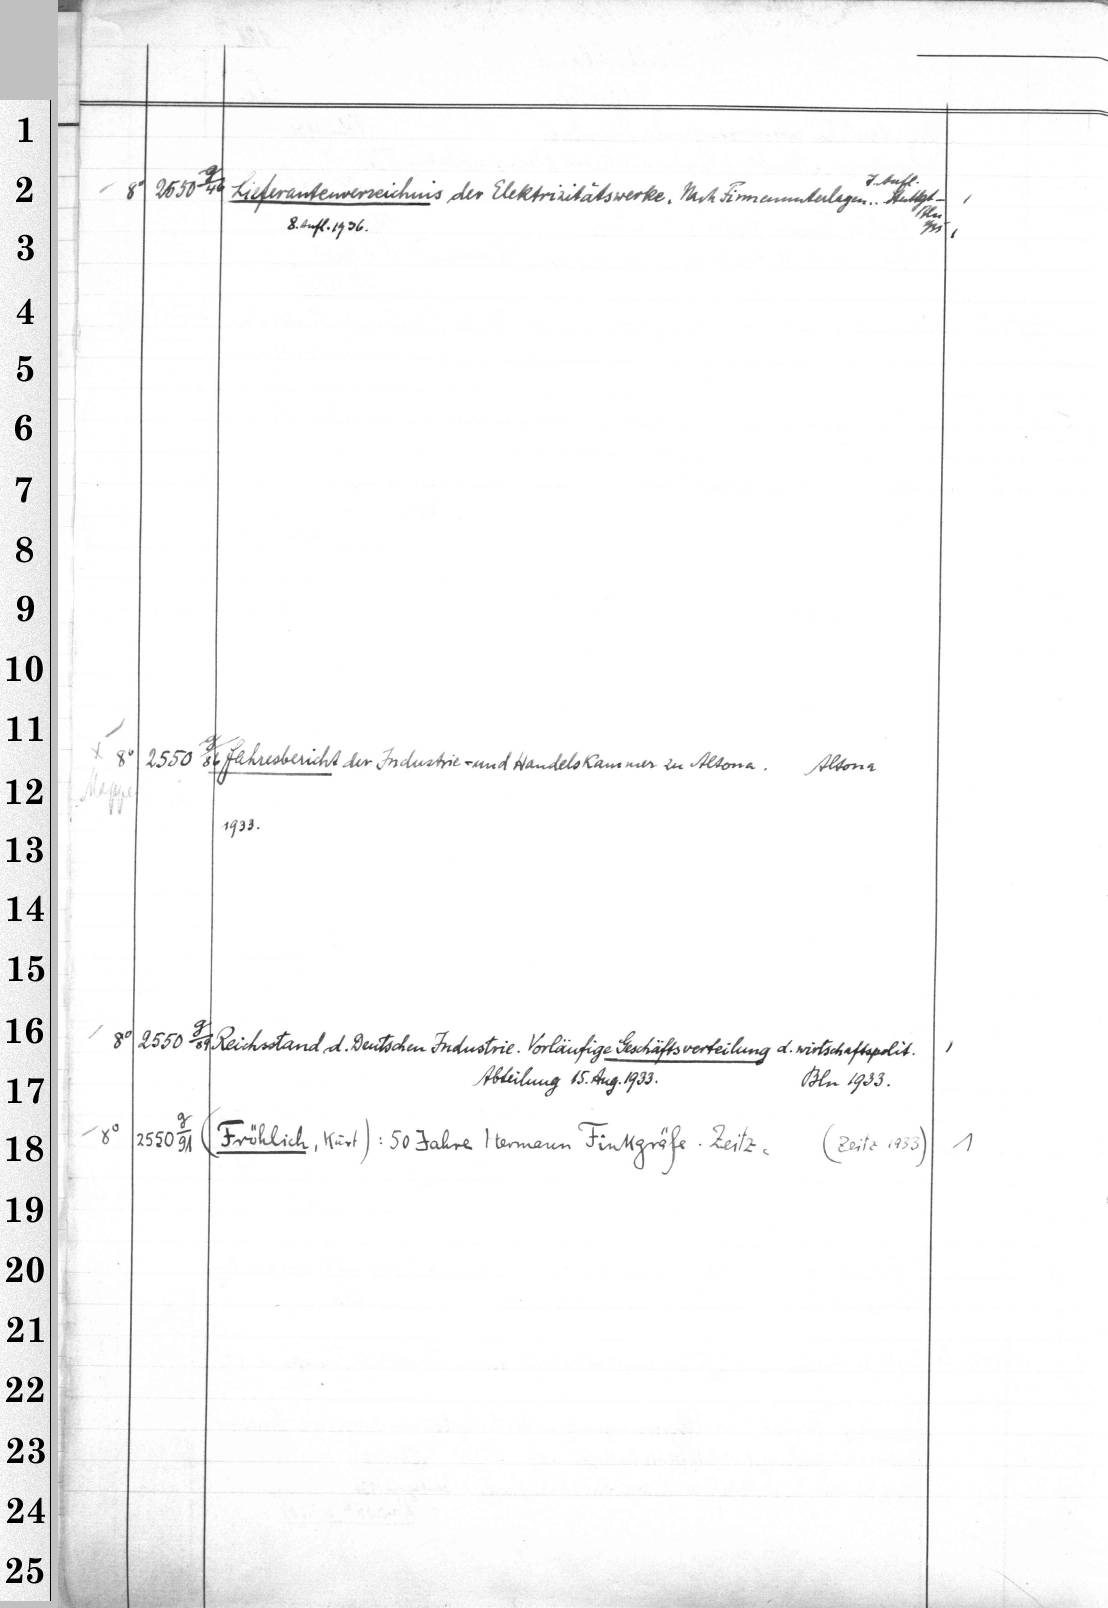 1
2 8° 2550 g/46 Lieferantenverzeichnis der Elektrizitätswerke. Nach Firmenunterlagen.. 7. Aufl. Stuttgt-Bln
3 8. Aufl. 1936.
4
5
6
7
8
9
10
11 8° 2550 g/86 Jahresbericht der Industrie- und Handelskammer zu Altona. Altona
12 Mappe
13 1933.
14
15
16 8° 2550 g/89 Reichsstand d. Deutschen Industrie. Vorläufige Geschäftsverteilung d. wirtschaftspolit.
17 Abteilung 15. Aug. 1933. Bln 1933.
18 8° 2550 g/91 (Fröhlich, Kurt): 50 Jahre Hermann Finkgräfe. Zeitz. (Zeitz 1933) 1
19
20
21
22
23
24
25